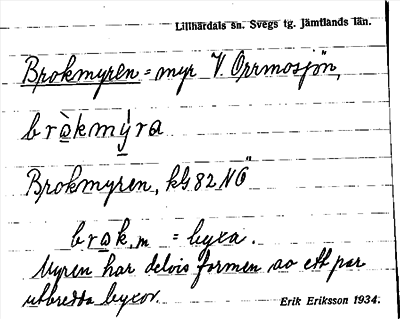 Lillhärdals sn. Svegs tg. Jämtlands län.
Brokmyren = myr V. Orrmosjön,
bròkmýra
Brokmyren, kbl 82 NÖ
brok, m = byxa.
Myren har delvis formen av ett par
utbredda byxor.
Erik Eriksson 1934.